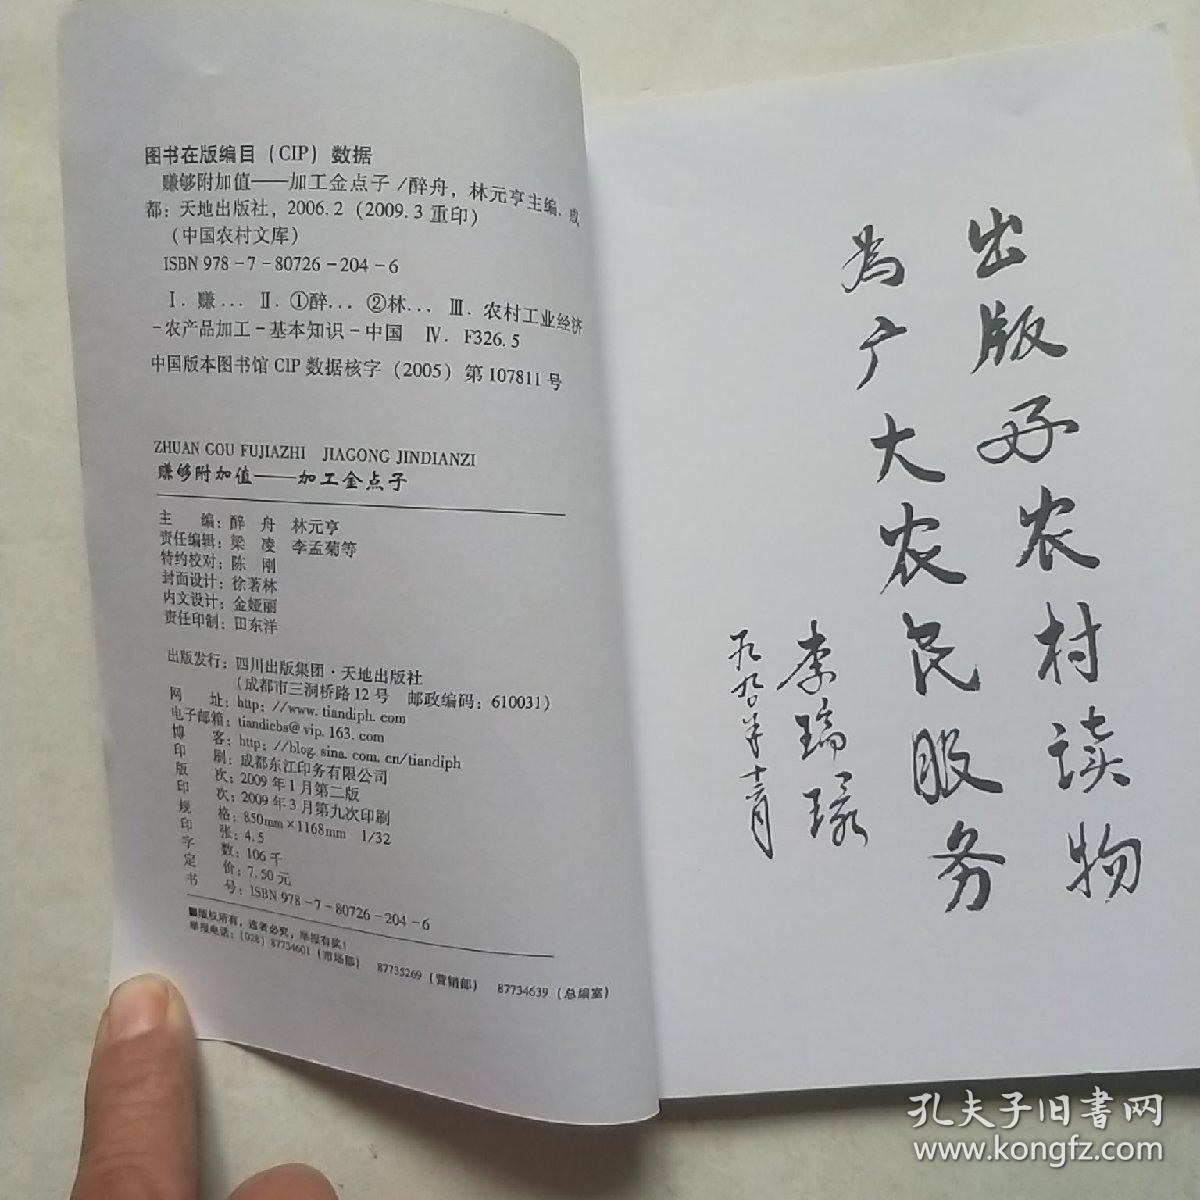 图书在版编目(CIP)数据
赚够附加值——加工金点子/醉舟,林元亨主编.成
都:天地出版社,2006.2(2009.3重印)
(中国农村文库)
ISBN 978-7-80726-204-6
Ⅰ.赚... Ⅱ.①醉...②林... Ⅲ.农村工业经济
-农产品加工-基本知识-中国 Ⅳ.F326.5
中国版本图书馆CIP数据核字(2005)第107811号
ZHUAN GOU FUJIAZHI JIAGONG JINDIANZI
赚够附加值——加工金点子
主 编:醉 舟 林元亨
责任编辑:梁 凌 李孟菊等
特约校对:陈 刚
封面设计:徐著林
内文设计:金娅丽
责任印制:田东洋
出版发行:四川出版集团·天地出版社
(成都市三洞桥路12号 邮政编码:610031)
网 址:http://www.tiandiph.com
电子邮箱:tiandicbs@vip.163.com
博 客:http://blog.sina.com.cn/tiandiph
印 刷:成都东江印务有限公司
版 次:2009年1月第二版
印 次:2009年3月第九次印刷
规 格:850mm×1168mm 1/32
印 张:4.5
字 数:106千
定 价:7.50元
书 号:ISBN 978-7-80726-204-6
■版权所有,违者必究,举报有奖!
举报电话:(028)87734601(市场部) 87735269(营销部) 87734639(总编室)
出版好农村读物
为广大农民服务
李瑞环
一九九〇年十二月
孔夫子旧书网
www.kongfz.com